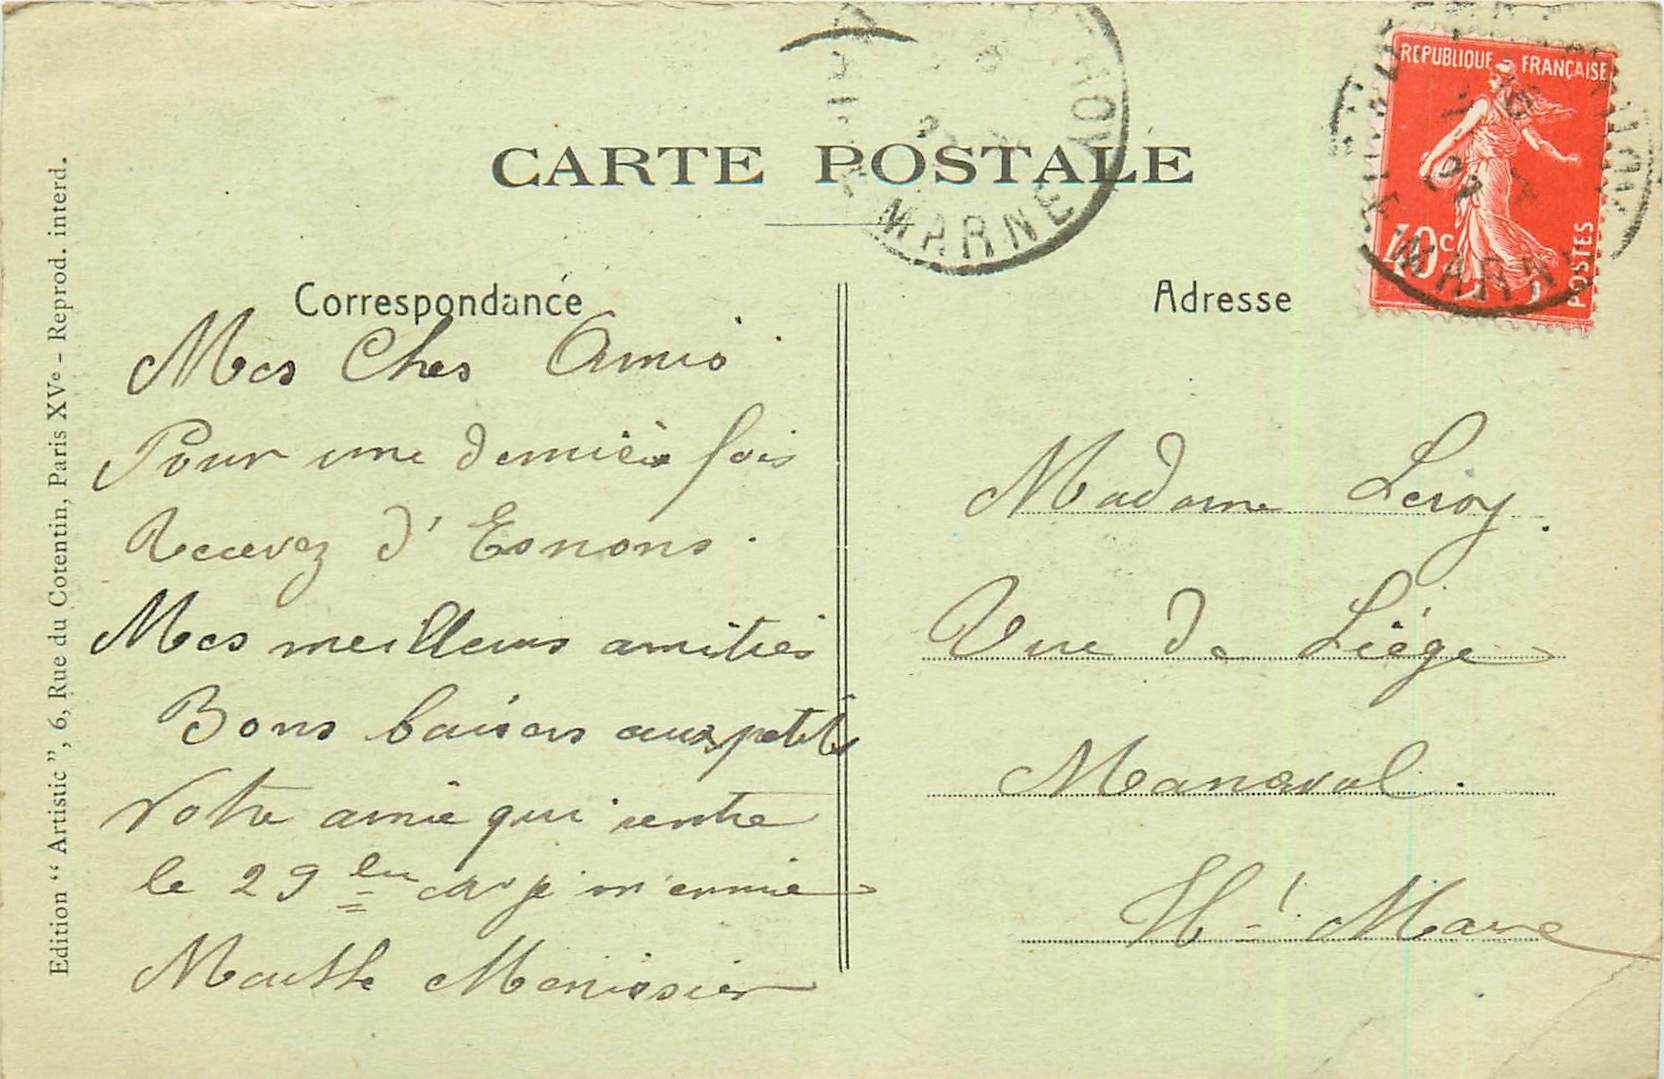 CARTE POSTALE
REPUBLIQUE FRANÇAISE
10c
POSTES
MARNE
MARNE
Edition “ Artistic ”, 6, Rue du Cotentin, Paris XVe - Reprod. interd.
Correspondance
Mes Chers Amis
Pour une dernière fois
Recevez d'Esnoms.
Mes meilleurs amitiés
Bons baisers aux petits
Votre amie qui rentre
le 29 car je m'ennuie
Marthe Menissier
Adresse
Madame Leroy.
Rue de Liège
Manoeval.
Hte Marne